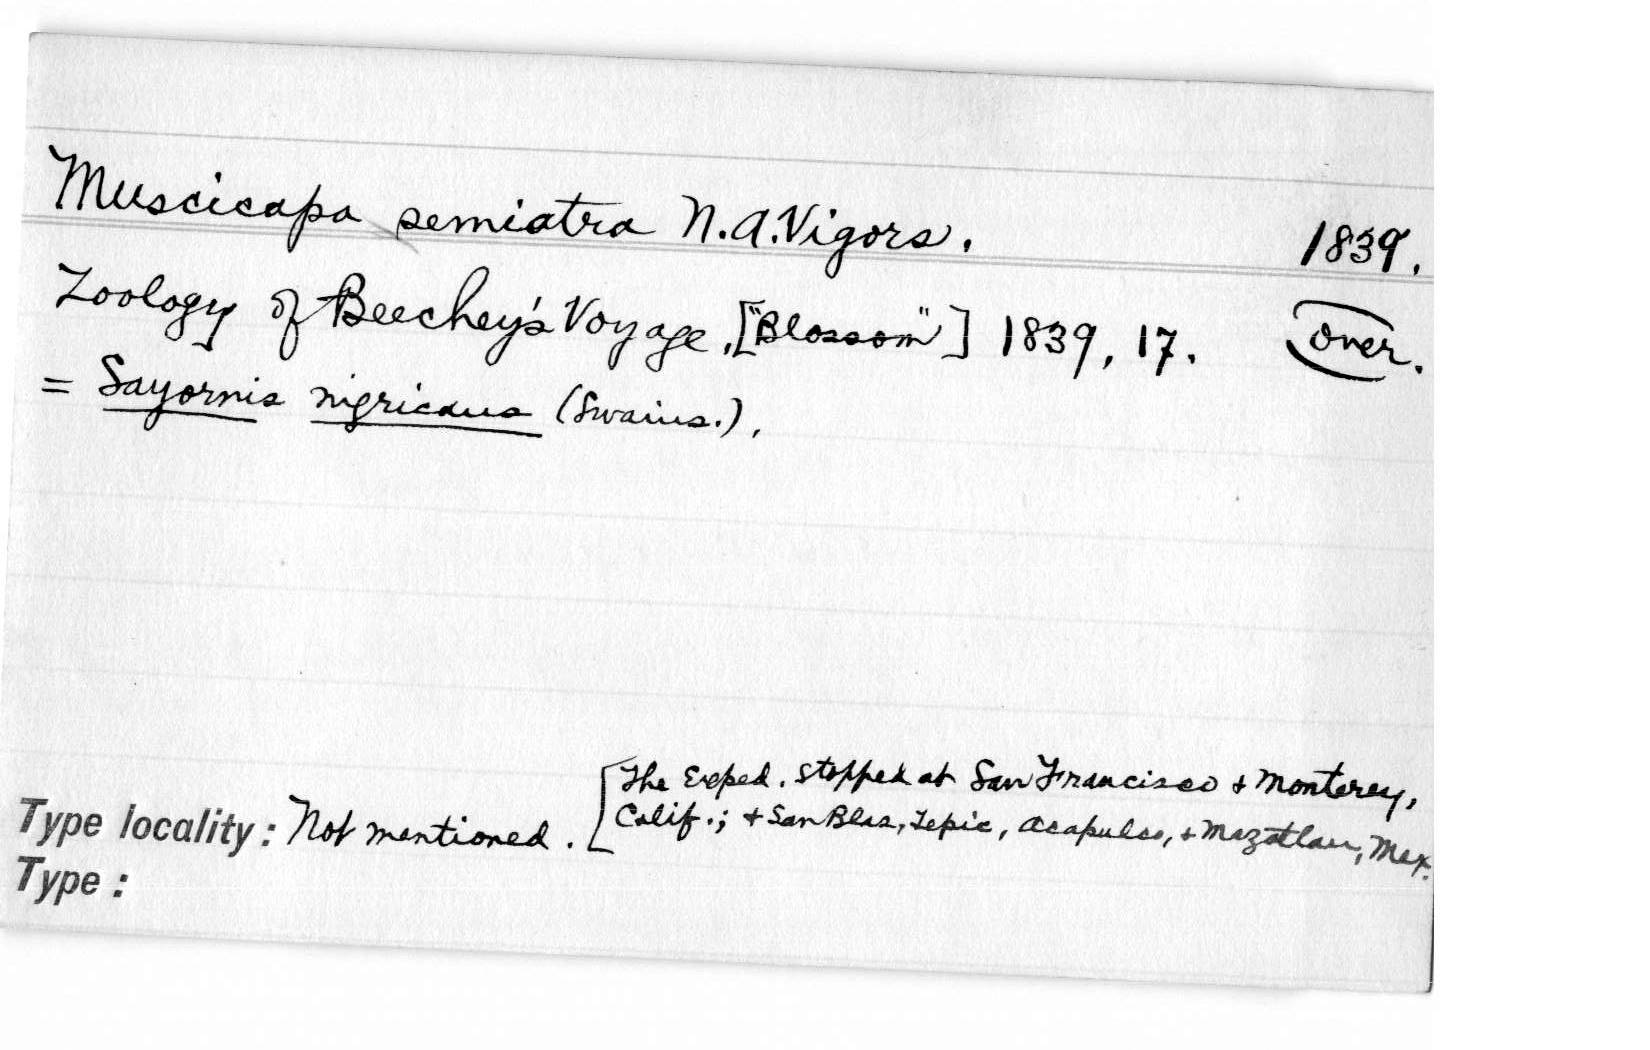 Muscicapa semiatra N.A.Vigors. 1839.
Zoology of Beechey's Voyage, ["Blossom"] 1839, 17. over.
= Sayornis nigricans (Swains.).
[The Exped. stopped at San Francisco + Monterey,
Calif.; + San Blas, Tepic, Acapulco, + Mazatlan, Mex.
Type locality: Not mentioned.
Type: